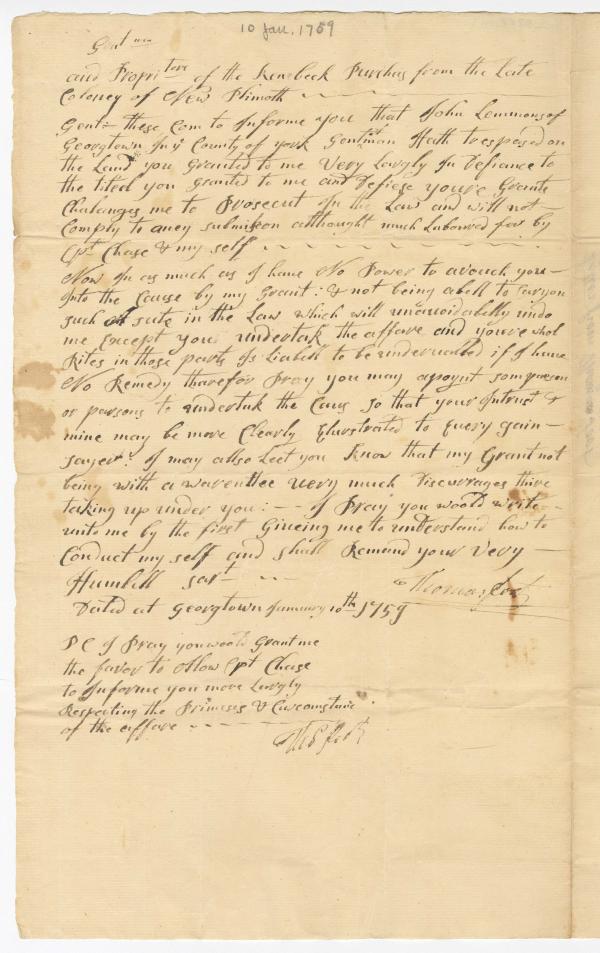 10 Jan. 1759
Gentmen
and Propritors of the Kenebeck Purchas from the Late
Coloney of New Plimoth
Gent: these Com to Informe you that John Lemmons of
Georgtown In ye County of york Gentman Hath trespased on
the Land you Granted to me Very Largly In Defiance to
the titel you Granted to me and Defiese youre Grante
Chalanges me to Prosecut In the Law and will not
Comply to aney submision althought much Laboured for by
Cpt Chase & my self
Now In as much as I have No Power to avouch you
Into the Cause by my Grant: & not being abell to Carry on
such A sute in the Law which will unavoidabelly undo
me Except you undertak the affare and youre whol
Rites in those parts Is Liabell to be undervalued if I have
No Remedy tharefor Pray you may apoynt som parson
or parsons to undertak the Caus so that your Intrust &
mine may be more Clearly Elustrated to Every gain
sayer: I may allso Leet you know that my Grant not
being with a warentee very much Discurrages thire
taking up under you: I Pray you woold write
unto me by the first Giveing me to understand how to
Conduct my self and shall Remand your Very
Humbell sart
Thomas
Dated at Georgtown January 10th 1759
PC I Pray you woold Grant me
the favor to Allow Cpt Chase
to Informe you more Largly
Respecting the Primeses & Curcomstane
of the affare